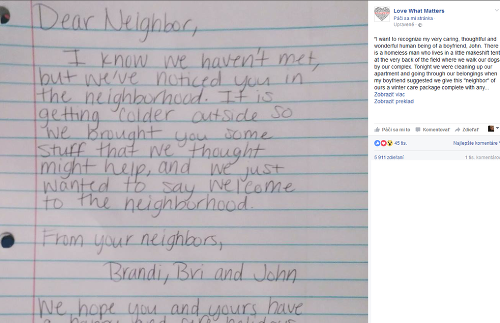 Dear Neighbor,
I know we haven't met,
but we've noticed you in
the neighborhood. It is
getting colder outside so
we brought you some
stuff that we thought
might help, and we just
wanted to say welcome
to the neighborhood.
From your neighbors,
Brandi, Bri and John
We hope you and yours have
Love What Matters
Páči sa mi stránka
"I want to recognize my very caring, thoughtful and
wonderful human being of a boyfriend, John. There
is a homeless man who lives in a little makeshift tent
at the very back of the field where we walk our dogs
by our complex. Tonight we were cleaning up our
apartment and going through our belongings when
my boyfriend suggested we give this "neighbor" of
ours a winter care package complete with any...
Zobraziť viac
Zobraziť preklad
Páči sa mi to Komentovať Zdieľať
45 tis. Najlepšie komentáre
5 911 zdieľaní 1 tis. komentárov